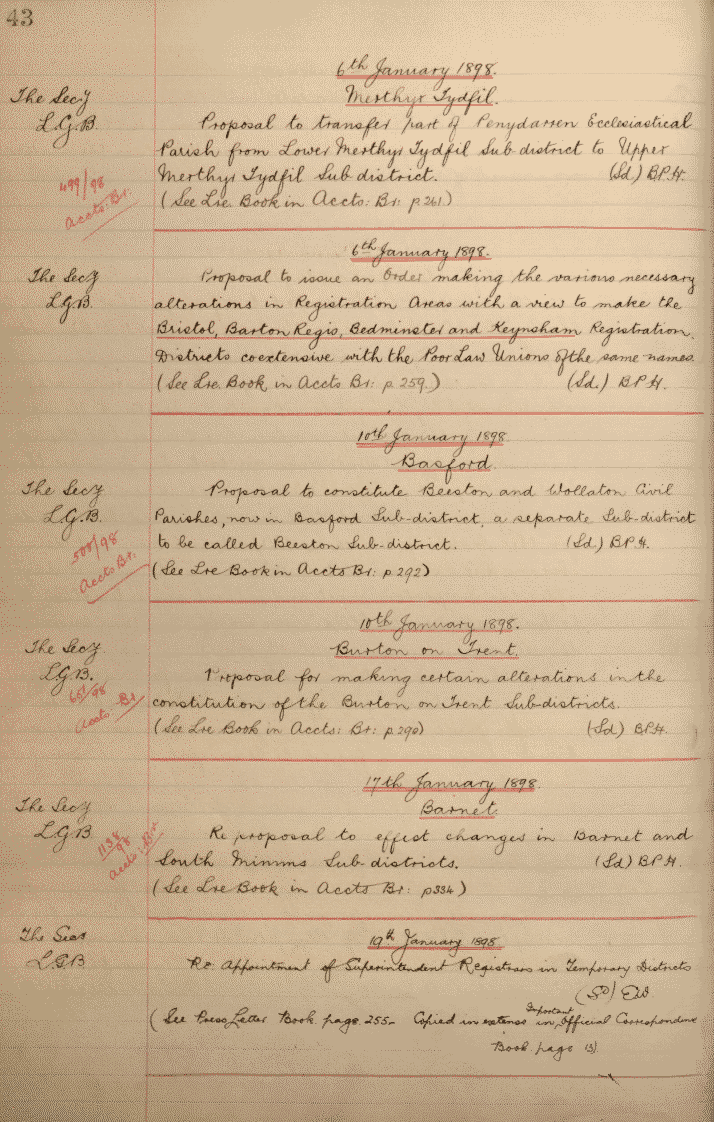 43
6th January 1898.
Merthyr Tydfil.
The Secy
L.G.B.
499/98
Accts: Br.
Proposal to transfer part of Penydarren Ecclesiastical
Parish from Lower Merthyr Tydfil Sub-district to Upper
Merthyr Tydfil Sub-district. (Sd.) B.P.H.
(See Lre. Book in Accts: Br: p 261.)
6th January 1898.
The Secy
L.G.B.
Proposal to issue an Order making the various necessary
alterations in Registration Areas with a view to make the
Bristol, Barton Regis, Bedminster and Keynsham Registration
Districts coextensive with the Poor Law Unions of the same names.
(See Lre. Book in Accts Br: p. 259.) (Sd.) B.P.H.
10th January 1898
Basford
The Secy
L.G.B.
500/98
Accts Br:
Proposal to constitute Beeston and Wollaton Civil
Parishes, now in Basford Sub-district, a separate Sub-district
to be called Beeston Sub-district. (Sd.) B.P.H.
(See Lre Book in Accts Br: p 292)
10th January 1898.
Burton on Trent.
The Secy
L.G.B.
651/98
Accts. Br
Proposal for making certain alterations in the
constitution of the Burton on Trent Sub-districts.
(See Lre Book in Accts: Br: p. 290) (Sd) B.P.H.
17th January 1898
Barnet.
The Secy
L.G.B
1138/98
Accts: Br
Re proposal to effect changes in Barnet and
South Mimms Sub-districts. (Sd) B.P.H.
(See Lre Book in Accts Br: p 334)
19th January 1898.
The Secy
L.G.B
Re Appointment of Superintendent Registrars in Temporary Districts
(Sd)
(See Press Letter Book. page 255. Copied in extenso in Important Official Correspondence
Book. page 13)